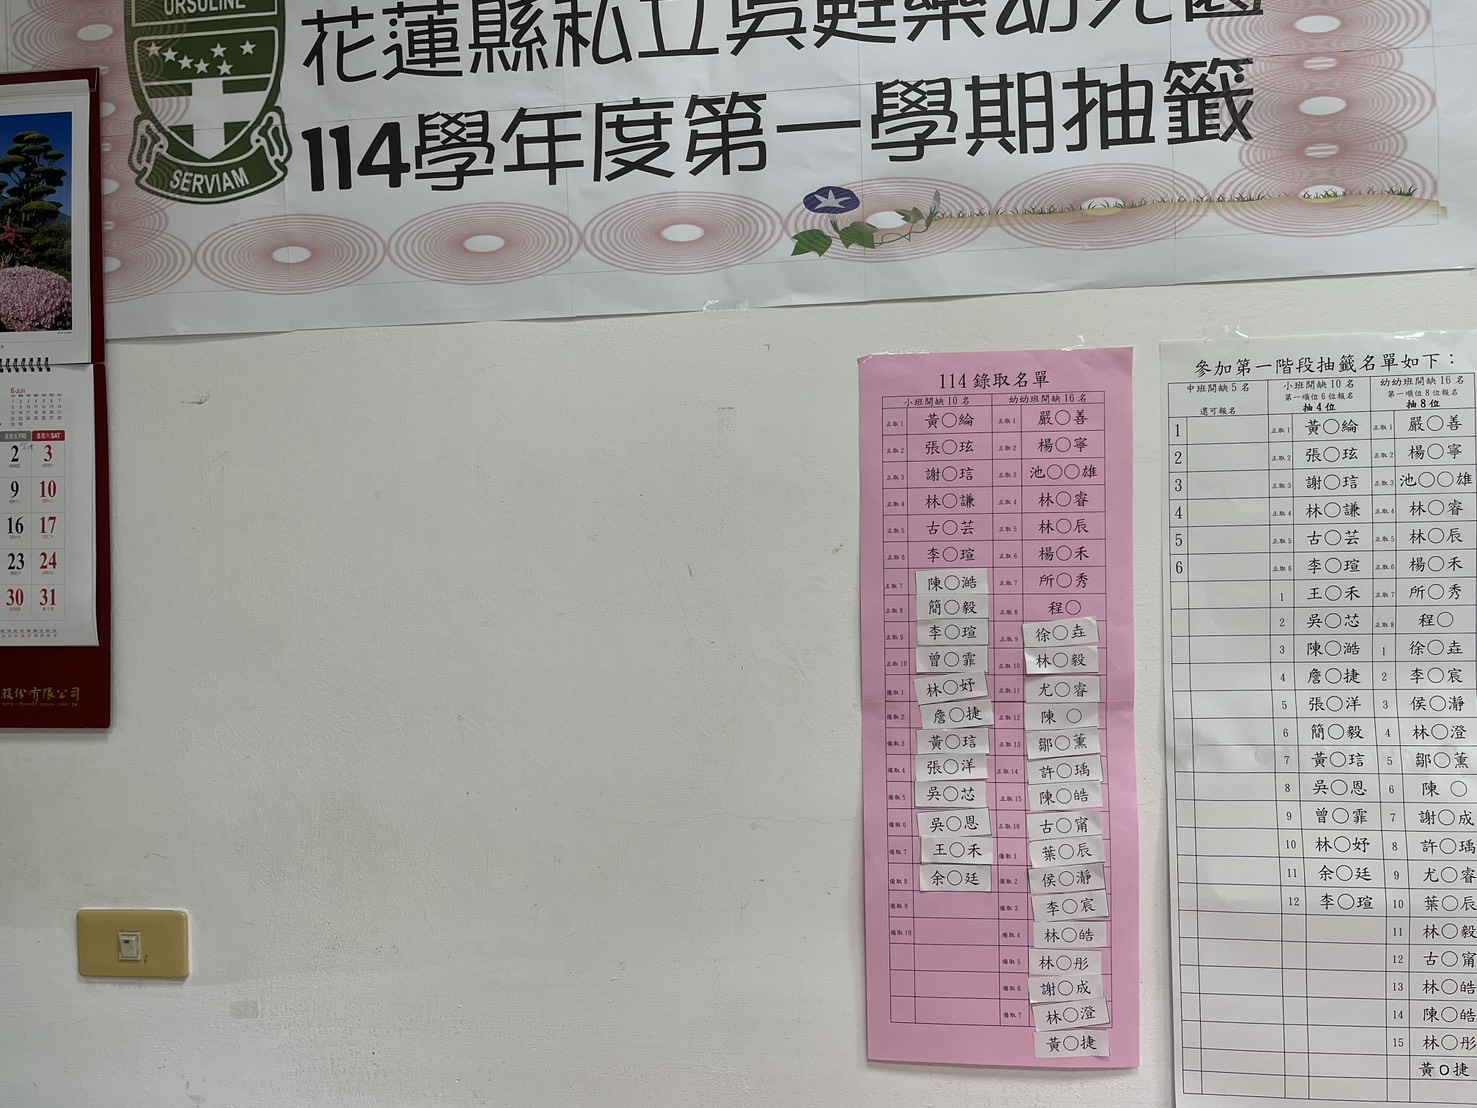 URSULINE
SERVIAM
花蓮縣私立吳甦樂幼兒園
114學年度第一學期抽籤
6 JUN
星期五 FRI 星期六 SAT
2 3
9 10
16 17
23 24
30 31
股份有限公司
114 錄取名單
小班開缺 10 名 幼幼班開缺 16 名
正取 1 黃○綸 正取 1 嚴○善
正取 2 張○玹 正取 2 楊○寧
正取 3 謝○琂 正取 3 池○○雄
正取 4 林○謙 正取 4 林○睿
正取 5 古○芸 正取 5 林○辰
正取 6 李○瑄 正取 6 楊○禾
正取 7 陳○澔 正取 7 所○秀
正取 8 簡○毅 正取 8 程○
正取 9 李○瑄 正取 9 徐○垚
正取 10 曾○霏 正取 10 林○毅
備取 1 林○妤 正取 11 尤○睿
備取 2 詹○捷 正取 12 陳 ○
備取 3 黃○琂 正取 13 鄒○薰
備取 4 張○洋 正取 14 許○瑀
備取 5 吳○芯 正取 15 陳○皓
備取 6 吳○恩 正取 16 古○甯
備取 7 王○禾 備取 1 葉○辰
備取 8 余○廷 備取 2 侯○瀞
備取 9 備取 3 李○宸
備取 10 備取 4 林○皓
備取 5 林○彤
備取 6 謝○成
備取 7 林○澄
黃○捷
參加第一階段抽籤名單如下：
中班開缺 5 名 小班開缺 10 名 幼幼班開缺 16 名
還可報名 第一順位 6 位報名 第一順位 8 位報名
抽 4 位 抽 8 位
1 正取 1 黃○綸 正取 1 嚴○善
2 正取 2 張○玹 正取 2 楊○寧
3 正取 3 謝○琂 正取 3 池○○雄
4 正取 4 林○謙 正取 4 林○睿
5 正取 5 古○芸 正取 5 林○辰
6 正取 6 李○瑄 正取 6 楊○禾
1 王○禾 正取 7 所○秀
2 吳○芯 正取 8 程○
3 陳○澔 1 徐○垚
4 詹○捷 2 李○宸
5 張○洋 3 侯○瀞
6 簡○毅 4 林○澄
7 黃○琂 5 鄒○薰
8 吳○恩 6 陳 ○
9 曾○霏 7 謝○成
10 林○妤 8 許○瑀
11 余○廷 9 尤○睿
12 李○瑄 10 葉○辰
11 林○毅
12 古○甯
13 林○皓
14 陳○皓
15 林○彤
黃○捷